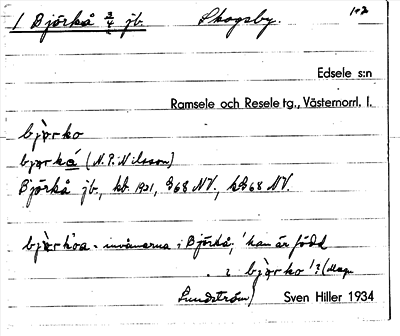 1 Björkå 3/4 jb. Skogsby. 1+2
Edsele s:n
Ramsele och Resele tg., Västernorrl. l.
bjərko
bjərkå (N. P. Nilsson)
Björkå jb., kb. 1921, 868 NV., k868 NV.
bjərkoa - invånarna i Björkå; 'han är född
i bjərko'? (Magn.
Lundström) Sven Hiller 1934